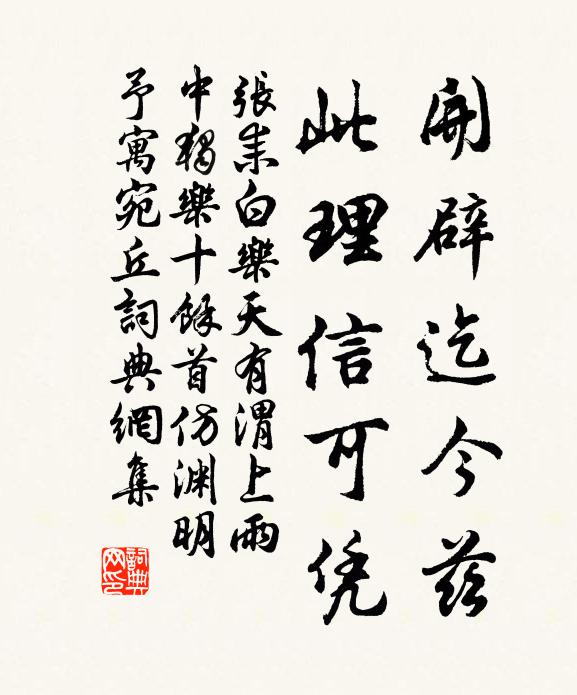 開辟迄今茲
此理信可凭
張耒白樂天有渭上雨
中獨樂十餘首仿淵明
予寓宛丘詞典網集
詞典
网印